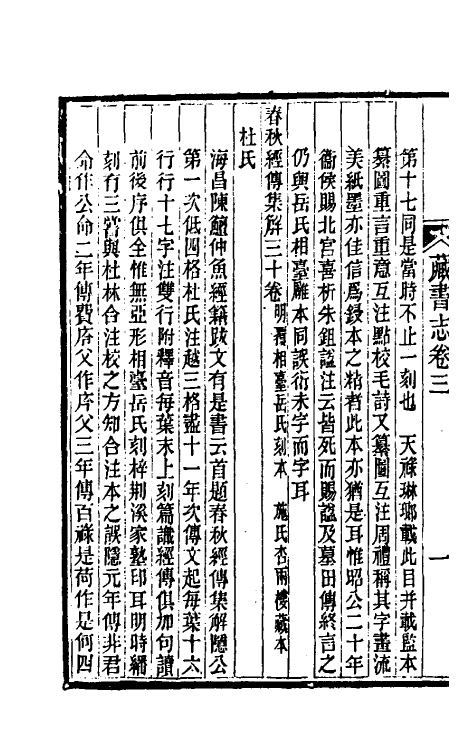 藏書志卷三
一
第十七同是當時不止一刻也　天祿琳瑯載此目并載監本
纂圖重言重意互注點校毛詩又纂圖互注周禮稱其字畫流
美紙墨亦佳信爲錢本之精者此本亦猶是耳惟昭公二十年
衞侯賜北宮喜析朱鉏諡注云皆死而賜諡及墓田傳終言之
仍與岳氏相臺雕本同誤衍未字而字耳
春秋經傳集解三十卷　明覆相臺岳氏刻本　施氏杏雨樓藏本
杜氏
海昌陳鱣仲魚經籍跋文有是書云首題春秋經傳集解隱公
第一次低四格杜氏注越三格盡十一年次傳文起每葉十六
行行十七字注雙行附釋音每葉末上刻篇識經傳俱加句讀
前後序俱全惟無亞形相臺岳氏刻梓荆溪家塾印耳明時繙
刻有三嘗與杜林合注校之方知合注本之誤隱元年傳非君
命作公命二年傳費庈父作序父三年傳百祿是荷作是何四